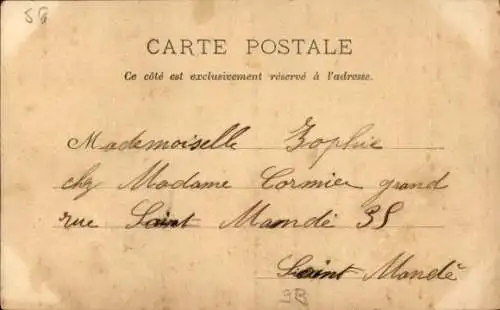 58
CARTE POSTALE
Ce côté est exclusivement réservé à l'adresse.
Mademoiselle Zophie
chez Madame Cormier grand
rue Saint Mamdé 35
Saint Mandé
9B